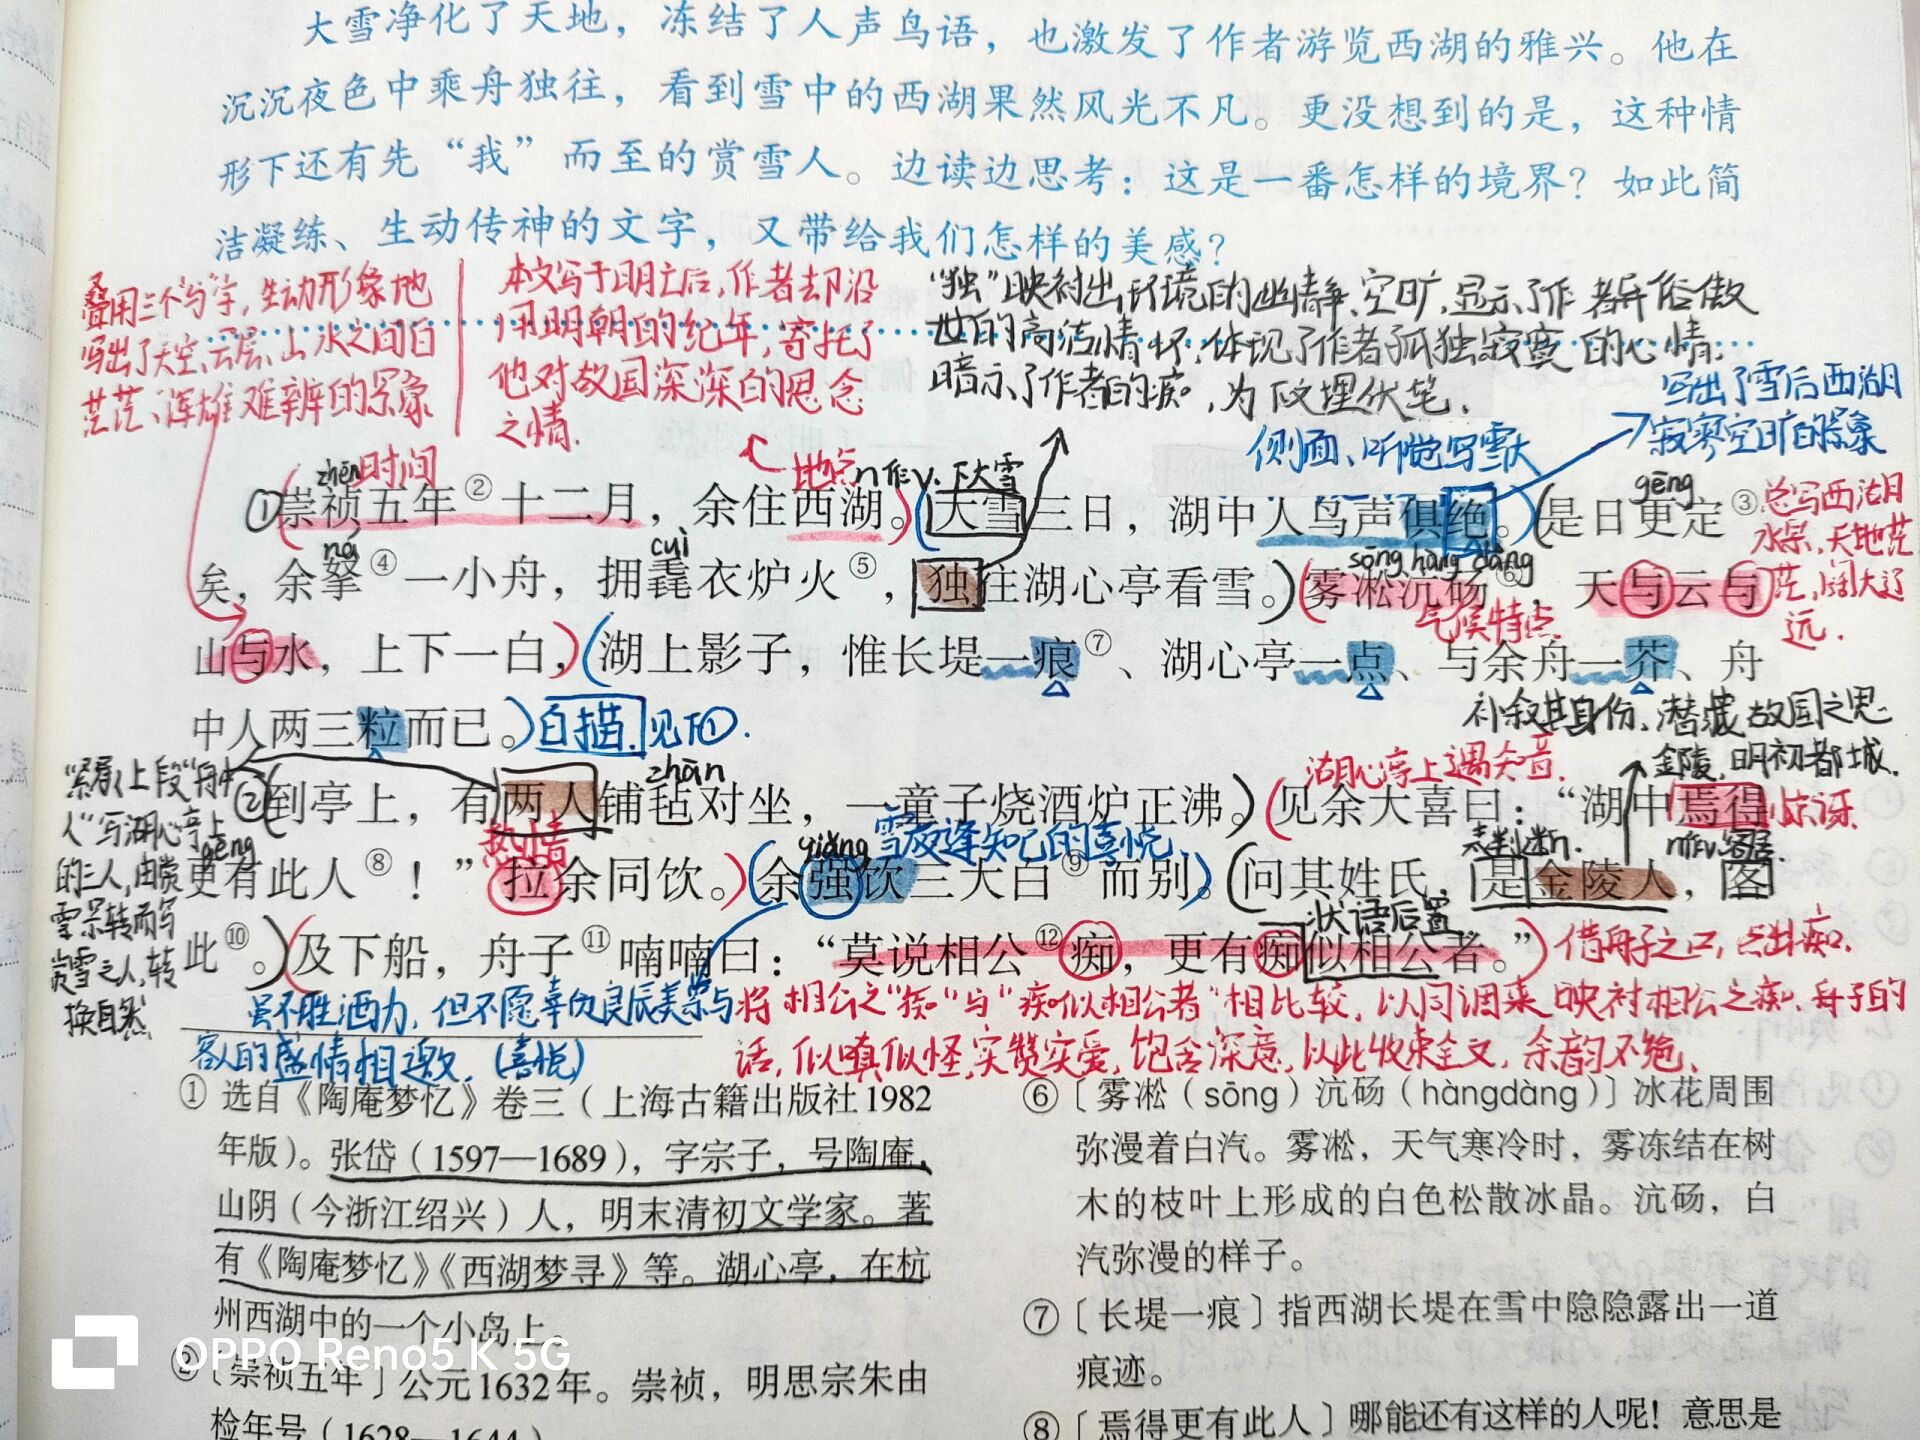 大雪净化了天地，冻结了人声鸟语，也激发了作者游览西湖的雅兴。他在
沉沉夜色中乘舟独往，看到雪中的西湖果然风光不凡。更没想到的是，这种情
形下还有先“我”而至的赏雪人。边读边思考：这是一番怎样的境界？如此简
洁凝练、生动传神的文字，又带给我们怎样的美感？
叠用三个“与”字，生动形象地
写出了天空、云层、山水之间白
茫茫、浑雄难辨的景象
本文写于明亡后，作者却沿
用明朝的纪年，寄托了
他对故国深深的思念
之情.
“独”映衬出环境的幽静、空旷，显示了作者孤俗傲
世的高洁情怀，体现了作者孤独寂寞的心情，
暗示了作者的痴，为下文埋伏笔.
写出了雪后西湖
寂寥空旷的景象
侧面、听觉写雪大
zhēn 时间
地点 n作v. 下大雪
gēng
①崇祯五年②十二月，余住西湖。大雪三日，湖中人鸟声俱绝。是日更定③
总写西湖
水景，天地茫
茫，阔大辽
远.
ná cuì sōng hàng dàng
矣，余拏④一小舟，拥毳衣炉火⑤，独往湖心亭看雪。雾凇沆砀⑥，天与云与
气候特点
山与水，上下一白，湖上影子，惟长堤一痕⑦、湖心亭一点、与余舟一芥、舟
中人两三粒而已。白描，见下①.
补叙其身份，潜藏故国之思
金陵，明初都城.
湖心亭上遇知音.
“紧承上段“舟中
人”写湖心亭上
的三人，由赏
雪景转而写
赏雪之人，转
换自然
zhān
②到亭上，有两人铺毡对坐，一童子烧酒炉正沸。见余大喜曰：“湖中焉得
惊讶.
gēng 热情 qiǎng 雪夜逢知己的喜悦. 表判断. n作v.客居.
更有此人⑧！”拉余同饮。余强饮三大白⑨而别。问其姓氏，是金陵人，客
状语后置
此⑩。及下船，舟子⑪喃喃曰：“莫说相公⑫痴，更有痴似相公者。”
借舟子之口，点出痴.
虽不胜酒力，但不愿辜负良辰美景与
客人的盛情相邀.(喜悦)
将相公之“痴”与“痴似相公者”相比较，以同调来映衬相公之痴，舟子的
话，似嗔似怪，实赞实爱，饱含深意，以此收束全文，余韵不绝.
① 选自《陶庵梦忆》卷三（上海古籍出版社1982
年版）。张岱（1597—1689），字宗子，号陶庵，
山阴（今浙江绍兴）人，明末清初文学家。著
有《陶庵梦忆》《西湖梦寻》等。湖心亭，在杭
州西湖中的一个小岛上。
② 〔崇祯五年〕公元1632年。崇祯，明思宗朱由
检年号（1628—1644）
⑥〔雾凇（sōng）沆砀（hàngdàng）〕冰花周围
弥漫着白汽。雾凇，天气寒冷时，雾冻结在树
木的枝叶上形成的白色松散冰晶。沆砀，白
汽弥漫的样子。
⑦〔长堤一痕〕指西湖长堤在雪中隐隐露出一道
痕迹。
⑧〔焉得更有此人〕哪能还有这样的人呢！意思是
OPPO Reno5 K 5G